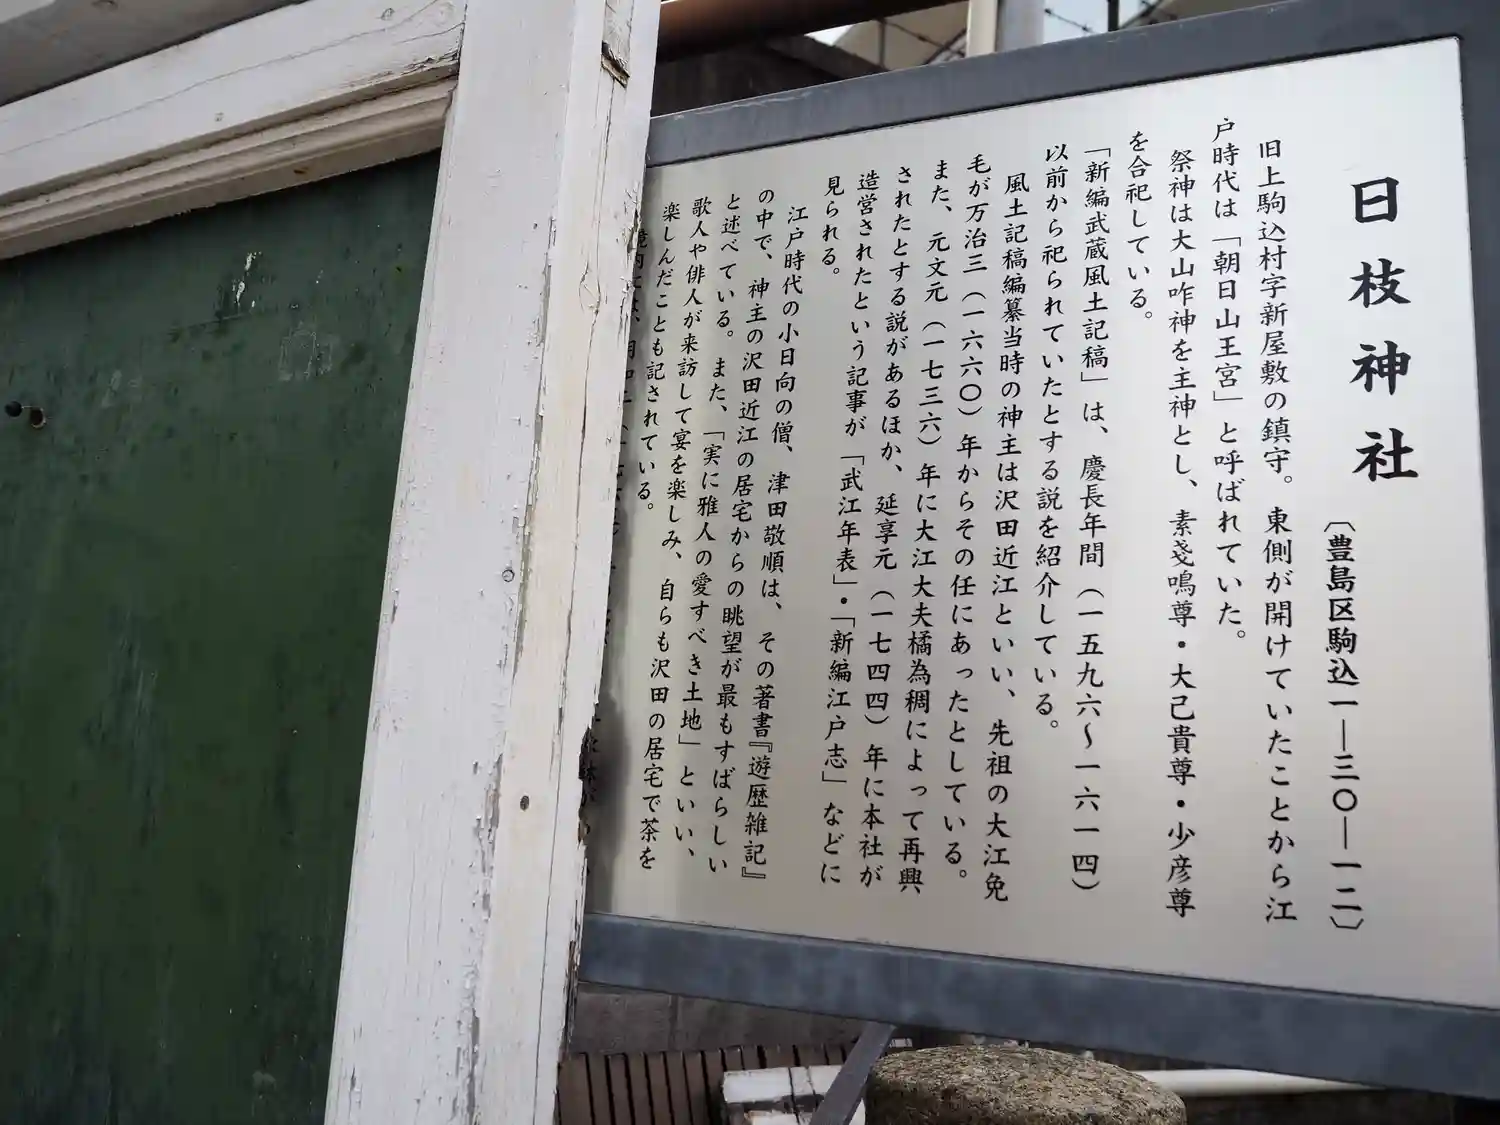 日枝神社
〔豊島区駒込一―三〇―一二〕
旧上駒込村字新屋敷の鎮守。東側が開けていたことから江
戸時代は「朝日山王宮」と呼ばれていた。
祭神は大山咋神を主神とし、素戔嗚尊・大己貴尊・少彦尊
を合祀している。
「新編武蔵風土記稿」は、慶長年間（一五九六～一六一四）
以前から祀られていたとする説を紹介している。
風土記稿編纂当時の神主は沢田近江といい、先祖の大江免
毛が万治三（一六六〇）年からその任にあったとしている。
また、元文元（一七三六）年に大江大夫橘為稠によって再興
されたとする説があるほか、延享元（一七四四）年に本社が
造営されたという記事が「武江年表」・「新編江戸志」などに
見られる。
江戸時代の小日向の僧、津田敬順は、その著書『遊歴雑記』
の中で、神主の沢田近江の居宅からの眺望が最もすばらしい
と述べている。また、「実に雅人の愛すべき土地」といい、
歌人や俳人が来訪して宴を楽しみ、自らも沢田の居宅で茶を
楽しんだことも記されている。